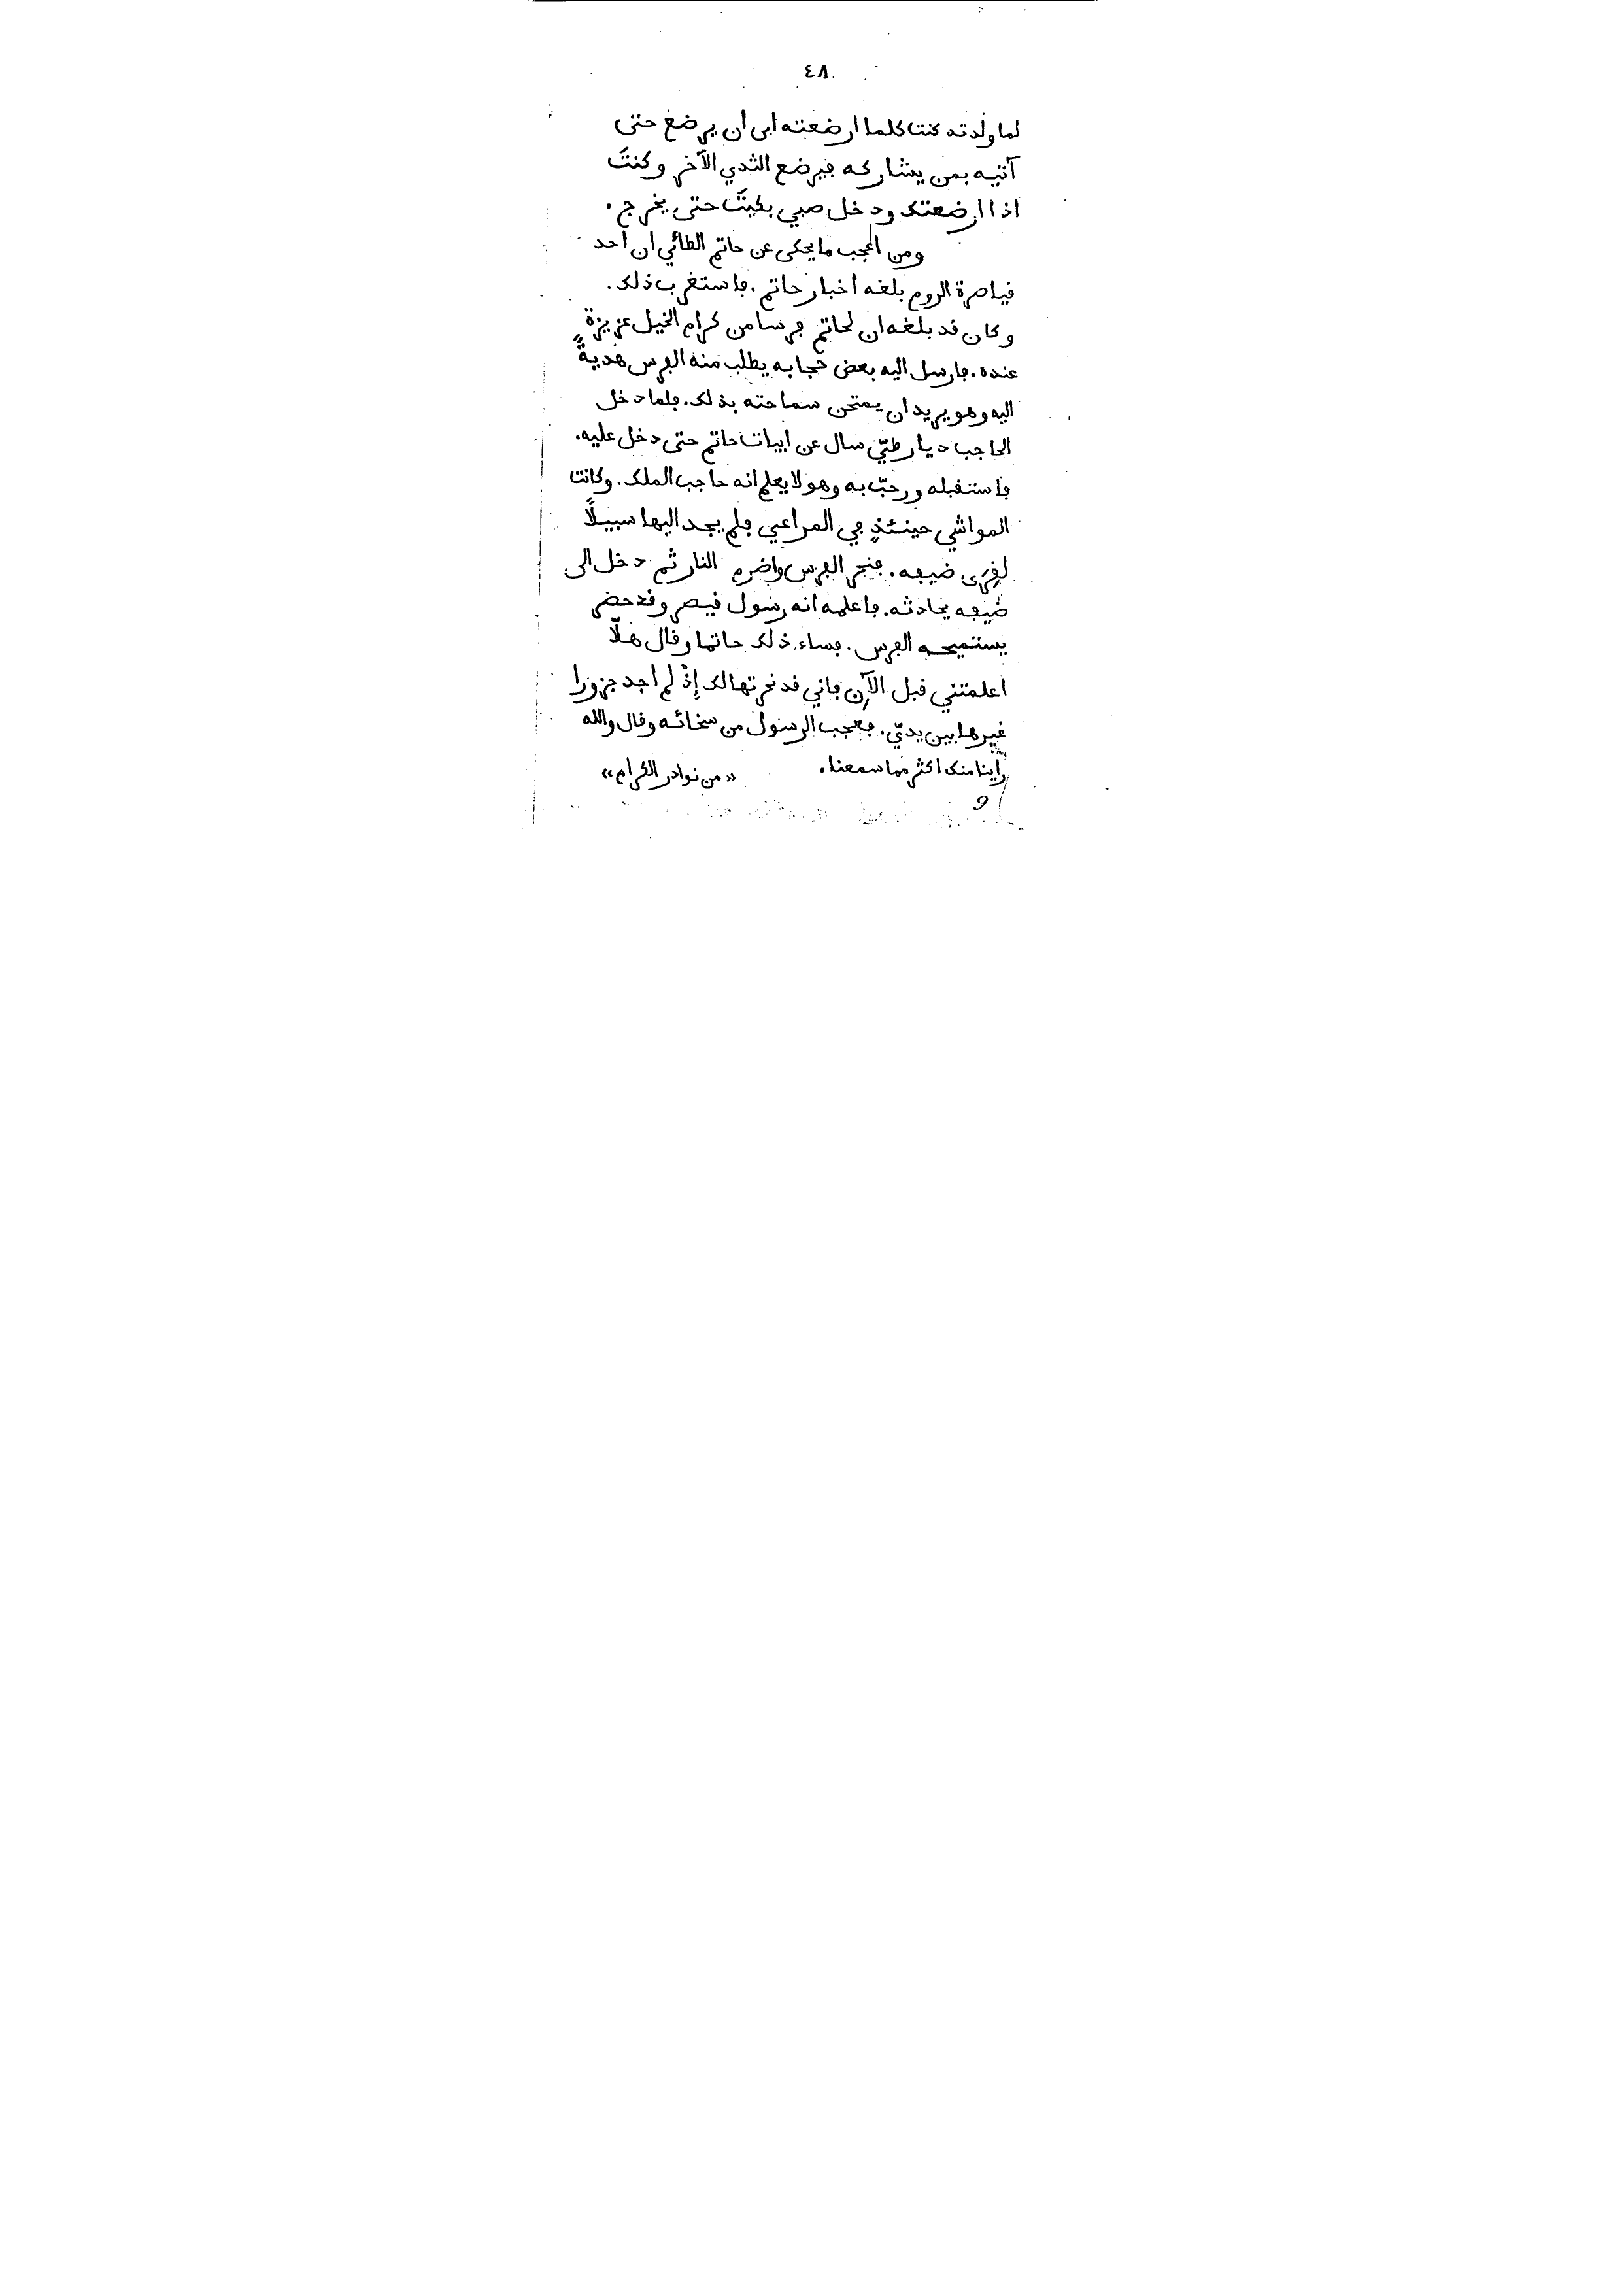 ٤٨
لما ولدته كنت كلما ارضعته ابى ان يرضع حتى
آتيه بمن يشاركه فيرضع الثدي الآخر وكنتَ
اذا ارضعتك ودخل صبي بكيتَ حتى يخرج.
ومن اعجب ما يحكى عن حاتم الطائي ان احد
قياصرة الروم بلغه اخبار حاتم. فاستغرب ذلك.
وكان قد بلغه ان لحاتم فرسا من كرام الخيل عزيزةٍ
عنده. فارسل اليه بعض حجابه يطلب منه الفرس هديةً
اليه وهو يريد ان يمتحن سماحته بذلك. فلما دخل
الحاجب ديار طيّ سال عن ابيات حاتم حتى دخل عليه.
فاستقبله ورحّب به وهو لا يعلم انه حاجب الملك. وكانت
المواشي حينئذٍ في المراعي فلم يجد اليها سبيلًا
لقِرَى ضيفه. فنحر الفرس واضرم النار ثم دخل الى
ضيفه يحادثه. فاعلمه انه رسول قيصر وقد حضر
يستميحه الفرس. فساء ذلك حاتما وقال هلّا
اعلمتني قبل الآن فاني قد نحرتها لك إِذْ لم اجد جزورا
غيرها بين يديّ. فعجب الرسول من سخائه وقال والله
راينا منك اكثر مما سمعنا. «من نوادر الكرام»